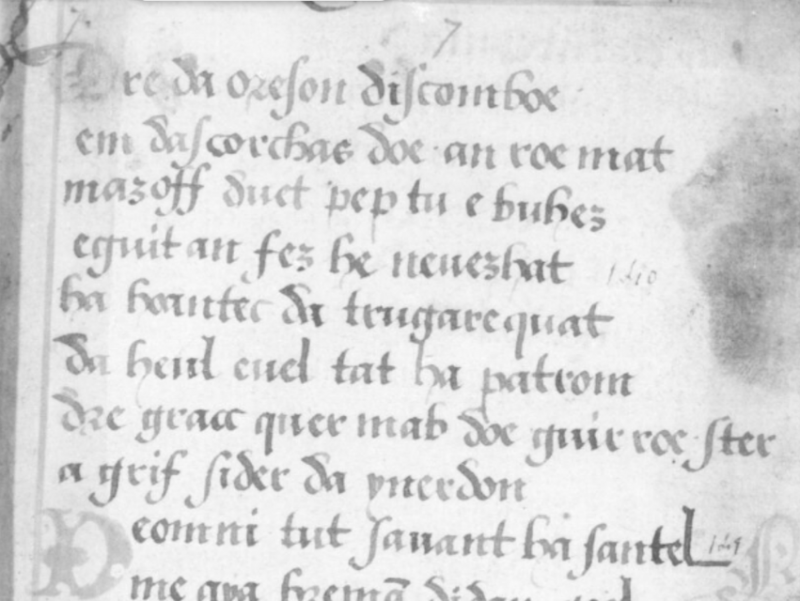 7
Dre da oreson discomboe
em dascorchas doe an roe mat
mazoff duet pep tu e buhez
eguit an fez he neuezhat
ha hoantec da trugarequat
da heul euel tat ha patrom
dre gracc quer mab doe guir roe ster
a grif sider da ynerdon
Deomni tut sauant ha santel
me aya breman